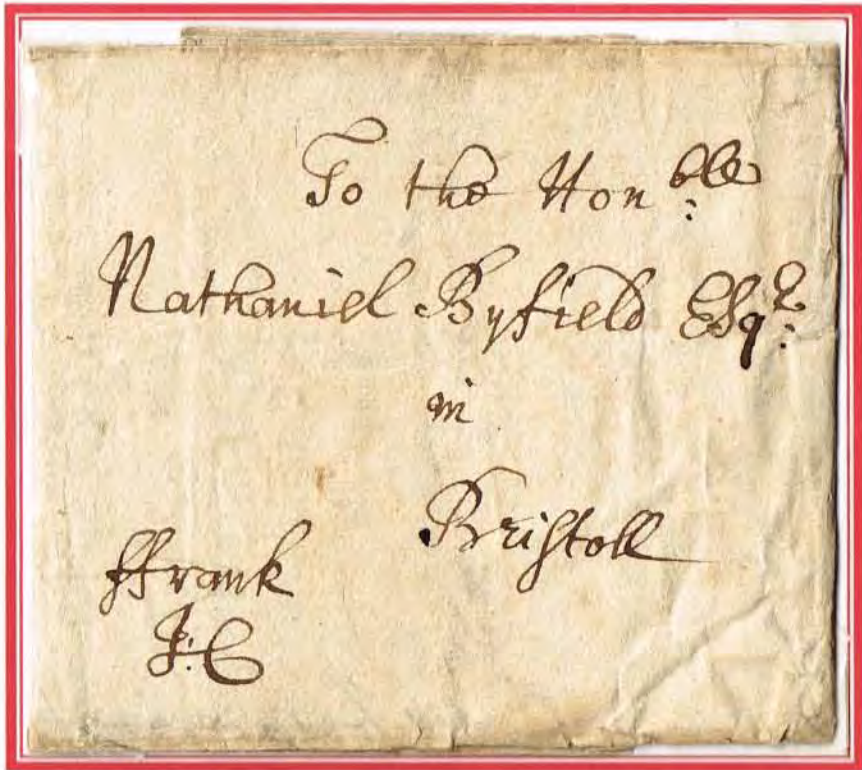 To the Hon:ble
Nathaniel Byfield Esqr:
in
Bristoll
ffrank
J:C